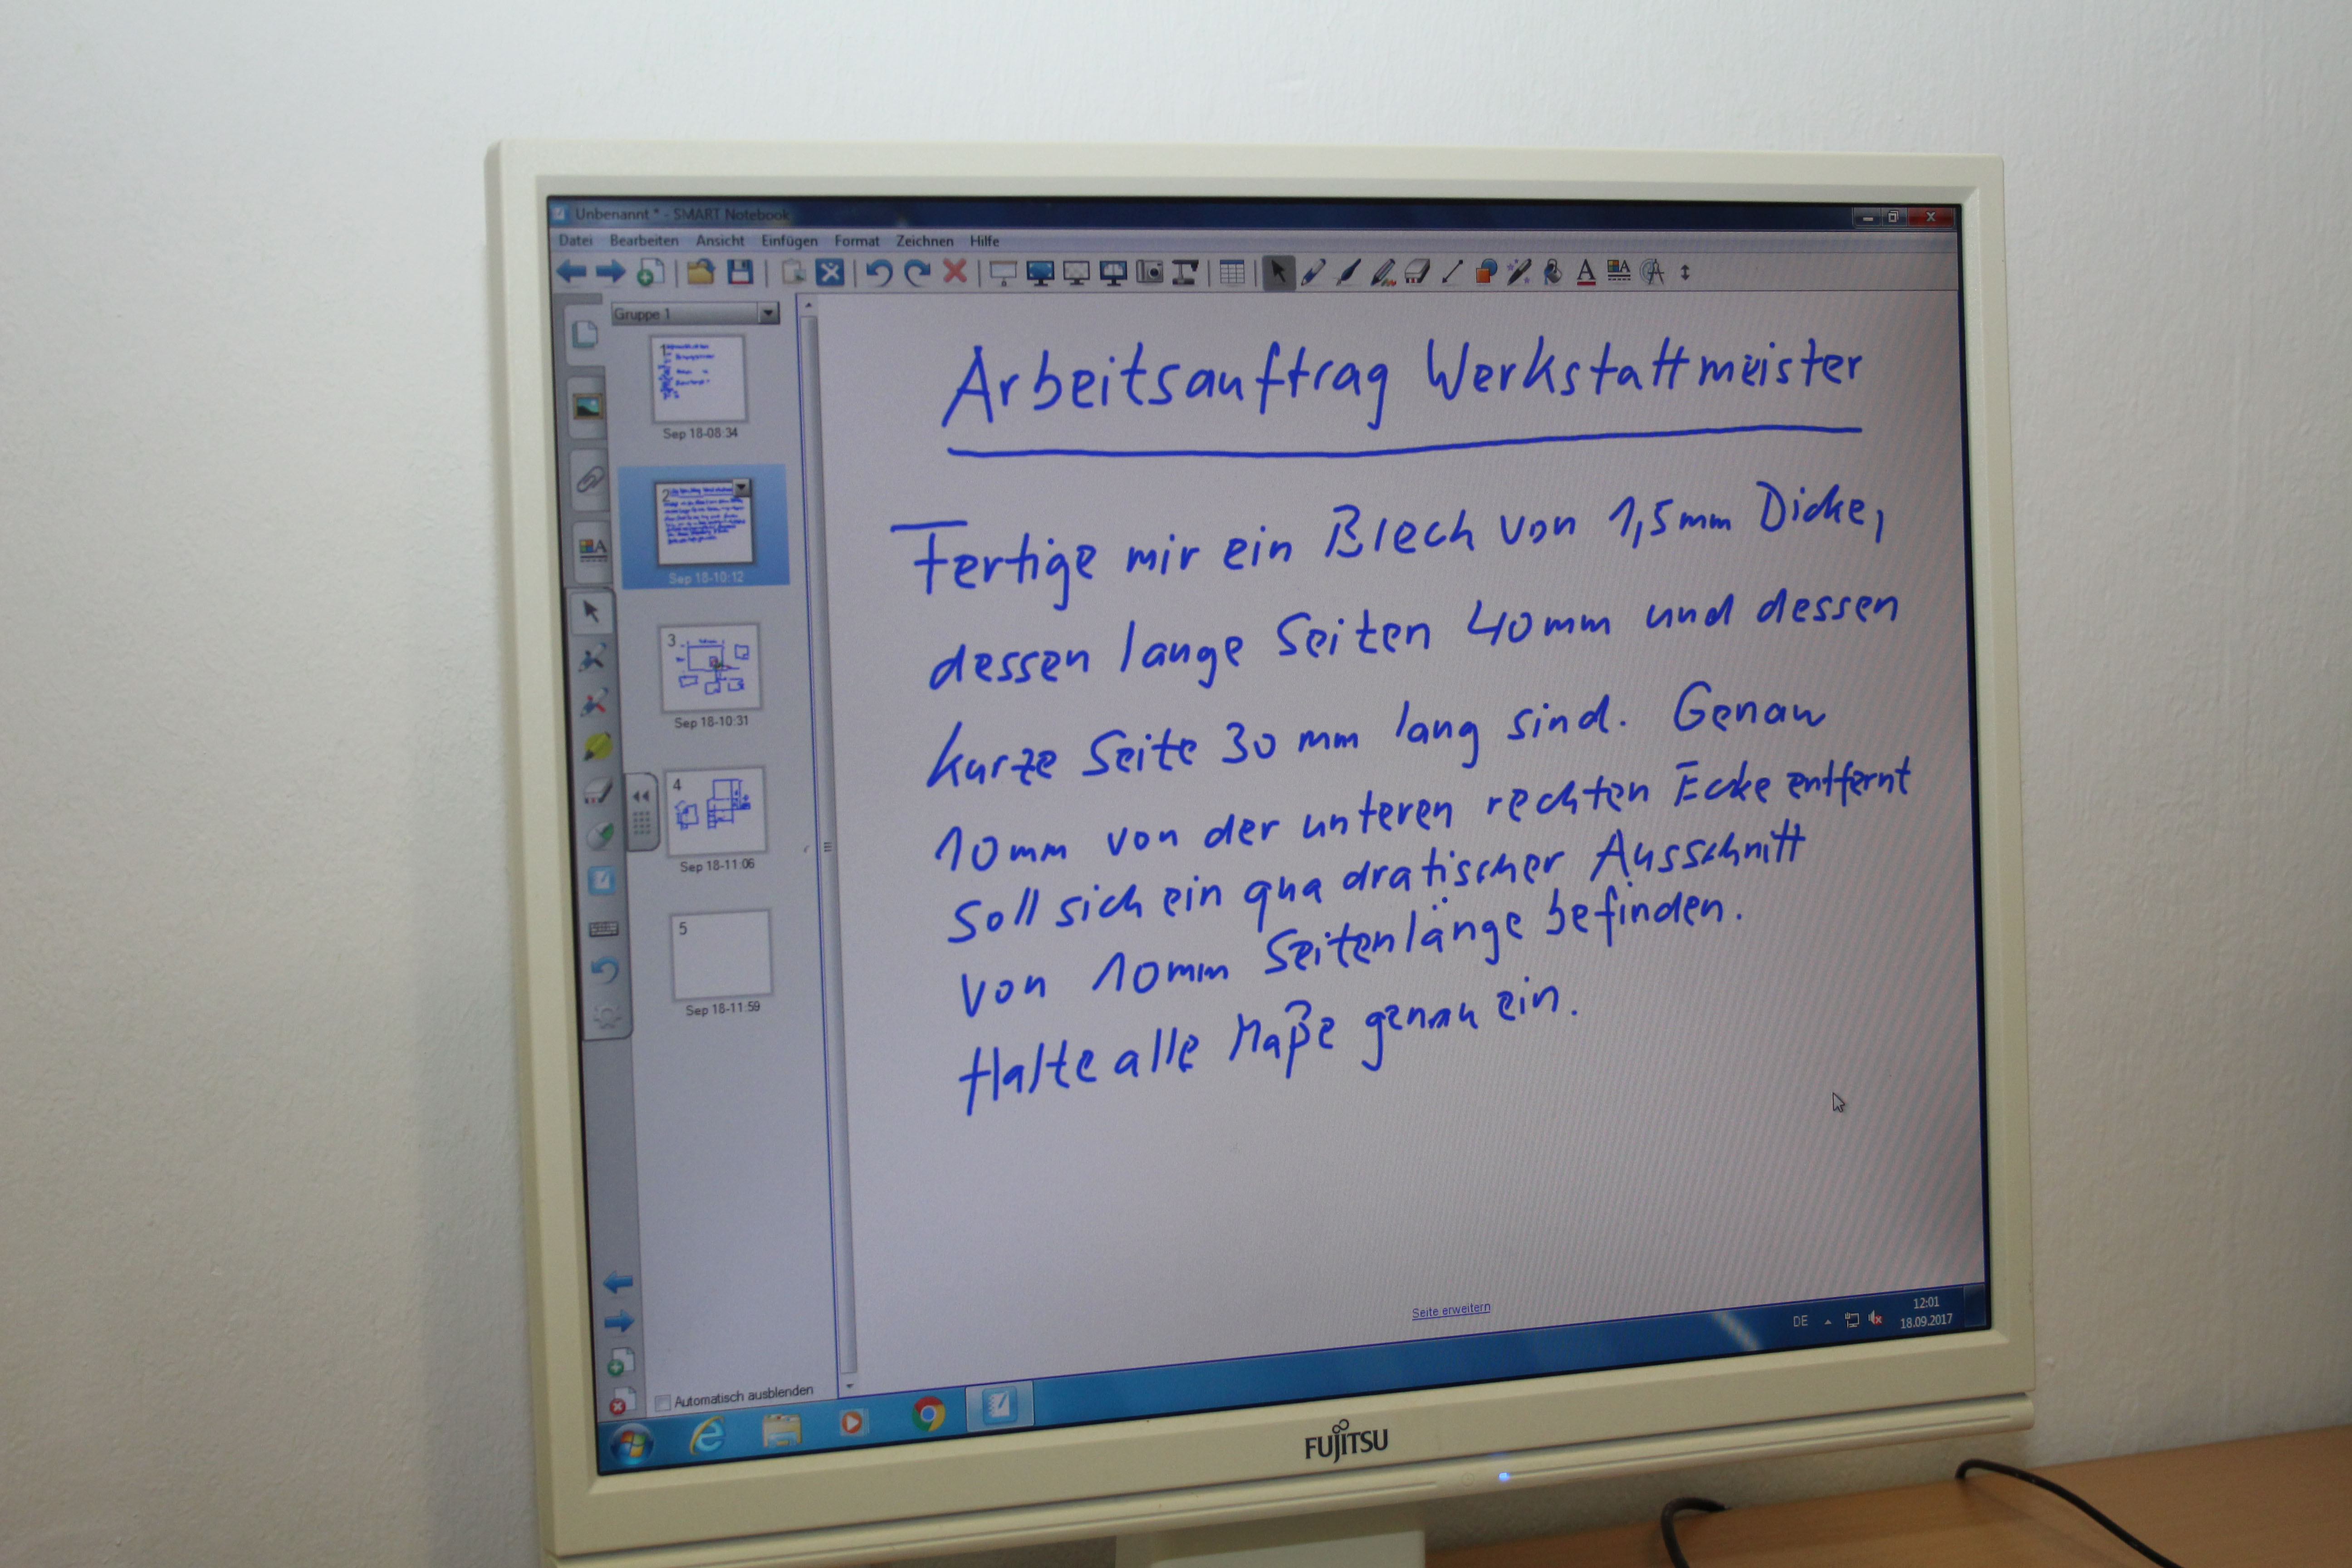 Unbenannt * - SMART Notebook
Datei Bearbeiten Ansicht Einfügen Format Zeichnen Hilfe
Gruppe 1
Sep 18-08:34
2
Sep 18-10:12
3
Sep 18-10:31
4
Sep 18-11:06
5
Sep 18-11:59
Automatisch ausblenden
Arbeitsauftrag Werkstattmeister
Fertige mir ein Blech von 1,5mm Dicke,
dessen lange Seiten 40mm und dessen
kurze Seite 30mm lang sind. Genau
10mm von der unteren rechten Ecke entfernt
soll sich ein quadratischer Ausschnitt
von 10mm Seitenlänge befinden.
Halte alle Maße genau ein.
Seite erweitern
DE
12:01
18.09.2017
FUJITSU